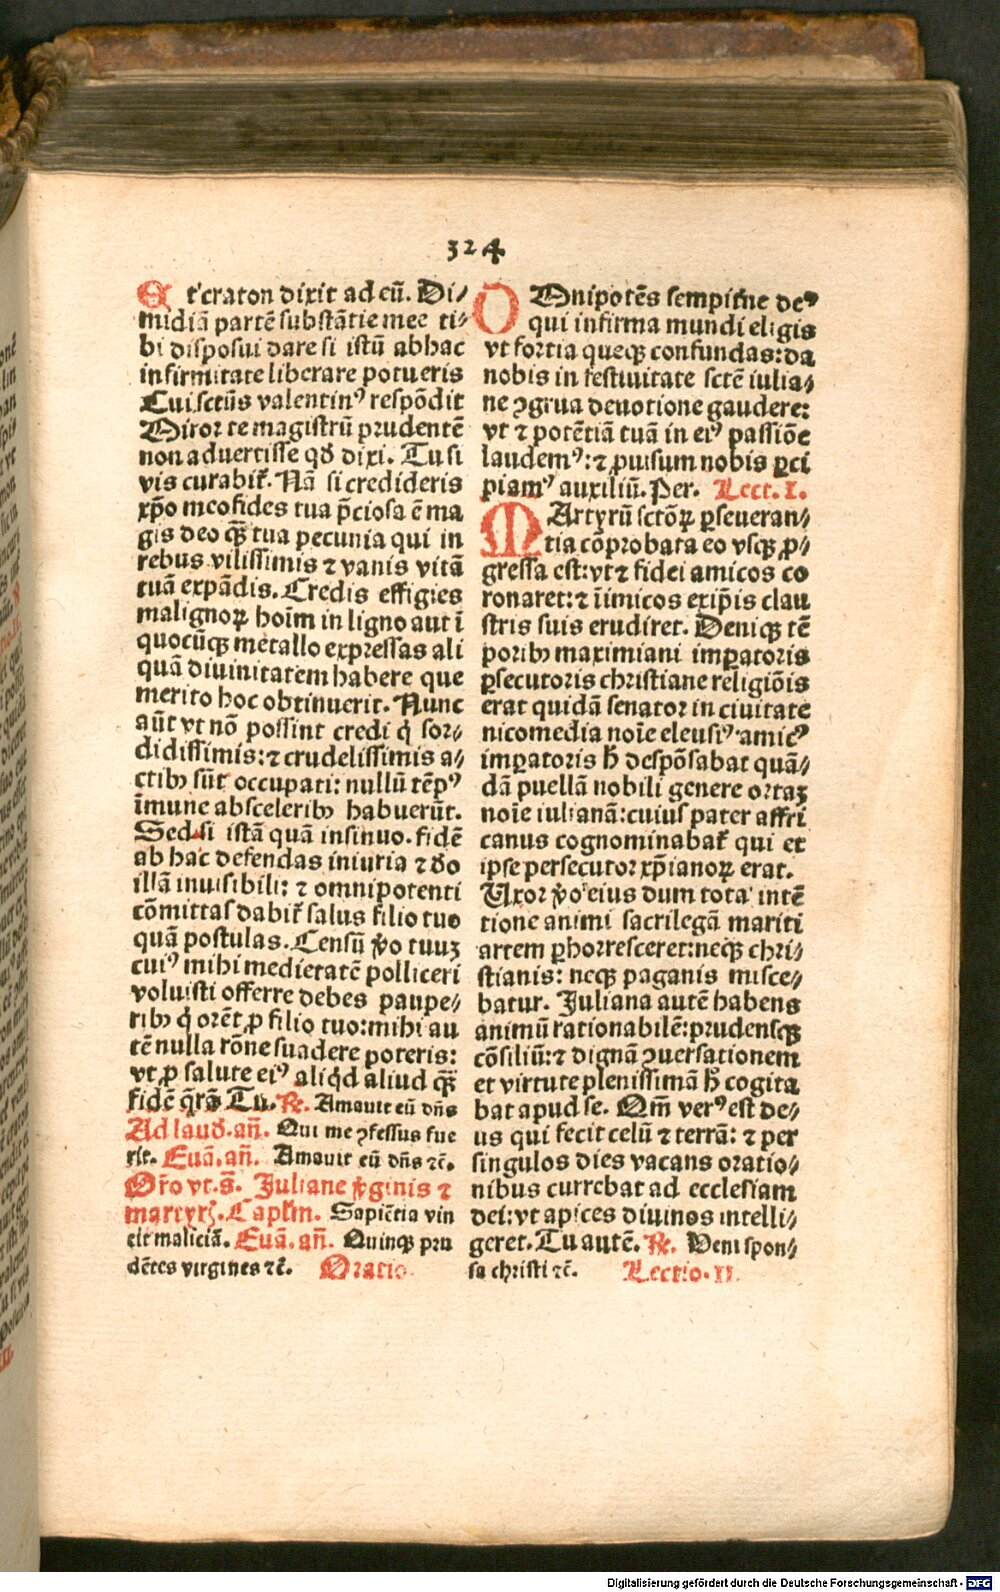 324
Et craton dixit ad eū. Di⸗
midiā partē substātie mee ti⸗
bi disposui dare si istū ab hac
infirmitate liberare potueris
Cui sctūs valentinꝰ respōdit
Miror te magistrū prudentē
non aduertisse qd̄ dixi. Tu si
vis curabit̄. Nā si credideris
xp̄o meo fides tua p̄ciosa ē ma
gis deo qꝫ̄ tua pecunia qui in
rebus vilissimis ⁊ vanis vitā
tuā expādis. Credis effigies
malignoꝝ hoīm in ligno aut ī
quocūqꝫ metallo expressas ali
quā diuinitatem habere que
merito hoc obtinuerit. Nunc
aūt vt nō possint credi q̇ sor⸗
didissimis: ⁊ crudelissimis a⸗
ctibꝰ sūt occupati: nullū tēpꝰ
īmune ab sceleribꝰ habuerūt.
Sed si istā quā insinuo. fidē
ab hac defendas iniuria ⁊ do
illā inuisibili: ⁊ omnipotenti
cōmittas dabit̄ salus filio tuo
quā postulas. Censū v̄o tuuꝫ
cuiꝰ mihi medietatē polliceri
voluisti offerre debes paupe⸗
ribꝰ q̇ orēt ꝓ filio tuo: mihi au
tē nulla rōne suadere poteris:
vt ꝓ salute eiꝰ aliqd aliud qꝫ̄
fidē q̄rā Tu. ℟. Amauit eū dn̄s
Ad laud. an̄. Qui me ꝯfessus fue
rit. Euā. an̄. Amauit eū dn̄s ⁊c̄.
Or̄o vt. s̄. Juliane v̄ginis ⁊
martyrꝭ. Capl̄m. Sapiētia vin
cit maliciā. Euā. an̄. Quinqꝫ pru
dētes virgines ⁊c̄. Oratio.
OMnipotēs sempit̄ne deꝰ
qui infirma mundi eligis
vt fortia queqꝫ confundas: da
nobis in festiuitate sctē iulia⸗
ne ꝯgrua deuotione gaudere:
vt ⁊ potētiā tuā in eiꝰ passiōe
laudemꝰ: ⁊ ꝓuisum nobis ꝑci
piamꝰ auxiliū. Per. Lect. I.
MArtyrū sctōꝝ ꝑseueran⸗
tia cōprobata eo vsqꝫ ꝓ⸗
gressa est: vt ⁊ fidei amicos co
ronaret: ⁊ īimicos exip̄is clau
stris suis erudiret. Deniqꝫ tē
poribꝰ maximiani imꝑatoris
ꝑsecutoris christiane religiōis
erat quidā senator in ciuitate
nicomedia noīe eleusiꝰ amicꝰ
imperatoris h̄ despōsabat quā⸗
dā puellā nobili genere ortaꝫ
noīe iulianā: cuius pater affri
canus cognominabat̄ qui et
ipse persecutor xp̄ianoꝝ erat.
Uxor v̄o eius dum tota intē
tione animi sacrilegā mariti
artem ꝑhorresceret: neqꝫ chri⸗
stianis: neqꝫ paganis misce⸗
batur. Juliana autē habens
animū rationabilē: prudensqꝫ
cōsiliū: ⁊ dignā ꝯuersationem
et virtute plenissimā h̄ cogita
bat apud se. Qm̄ verꝰ est de⸗
us qui fecit celū ⁊ terrā: ⁊ per
singulos dies vacans oratio⸗
nibus currebat ad ecclesiam
dei: vt apices diuinos intelli⸗
geret. Tu autē. ℟. Veni spon⸗
sa christi ⁊c̄. Lectio. II.
Digitalisierung gefördert durch die Deutsche Forschungsgemeinschaft - DFG